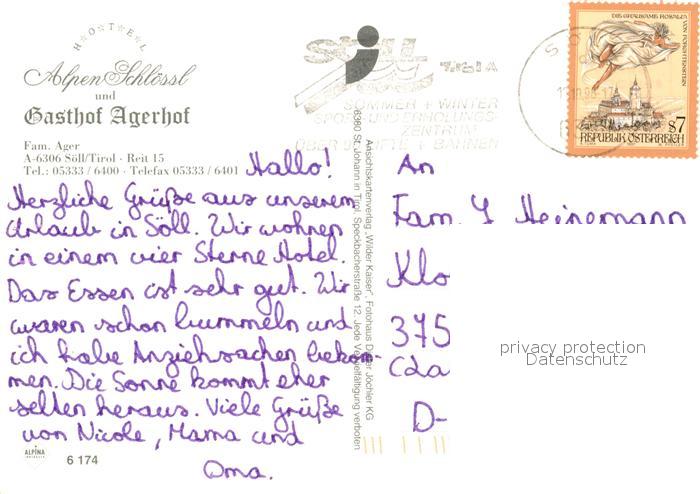 H·O·T·E·L
Alpen Schlössl
und
Gasthof Agerhof
Fam. Ager
A-6306 Söll/Tirol · Reit 15
Tel.: 05333 / 6400 · Telefax 05333 / 6401
Hallo!
Herzliche Grüße aus unserem
Urlaub in Söll. Wir wohnen
in einem vier Sterne Hotel.
Das Essen ist sehr gut. Wir
waren schon bummeln und
ich habe Anziehsachen bekom-
men. Die Sonne kommt eher
selten heraus. Viele Grüße
von Nicole, Mama und
Oma.
ALPINA
6 174
SÖLL
Tirol A
SOMMER + WINTER
SPORT- UND ERHOLUNGS-
ZENTRUM
BAHNEN
Ansichtskartenverlag „Wilder Kaiser", Fotohaus Jöchler KG
6380 St. Johann in Tirol, Speckbacherstraße 12. Jede Vervielfältigung verboten
DIE GRAUSAME ROSALIA VON FORCHTENSTEIN
S7
REPUBLIK ÖSTERREICH
An
Fam. Heinemann
Klo
375
D-
privacy protection
Datenschutz